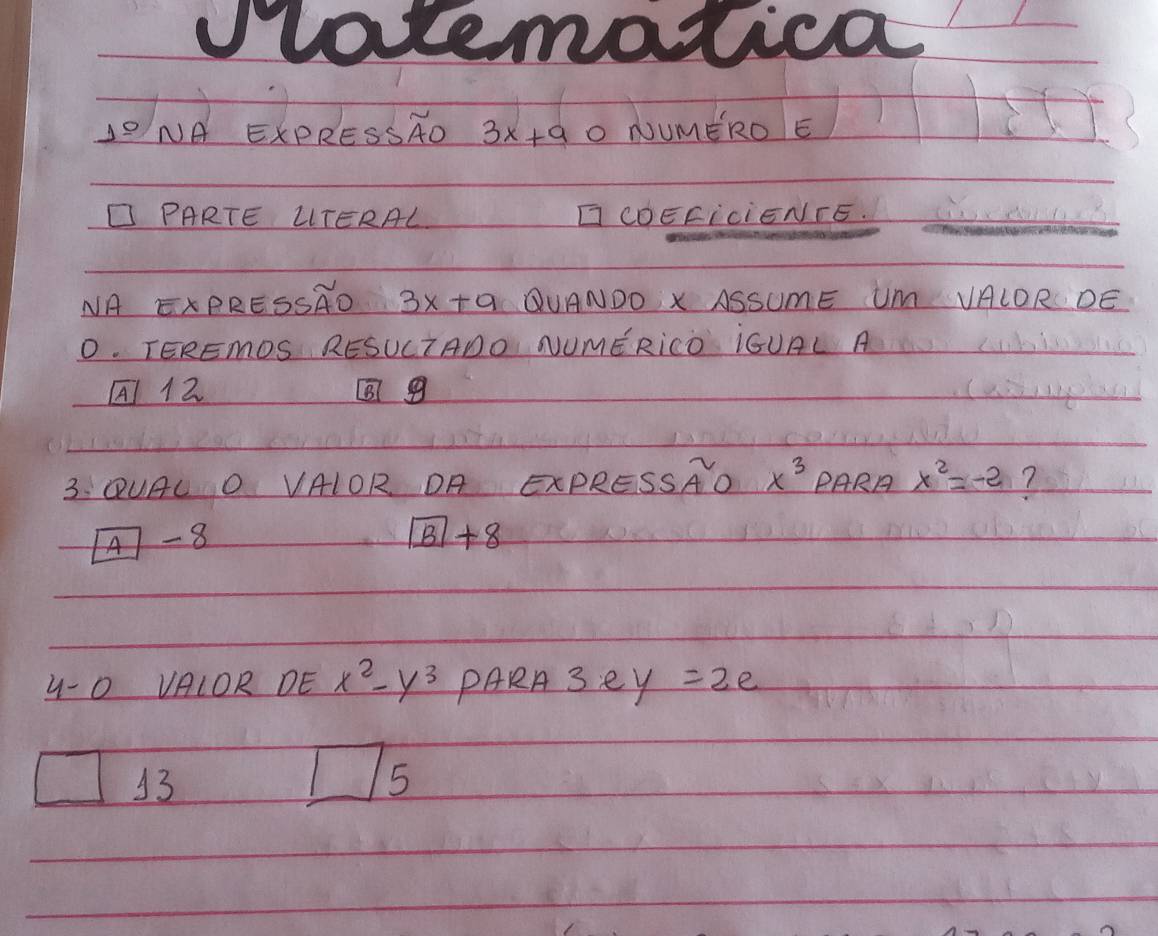 Matemática
1º NA EXPRESSÃO 3x+9 O NUMÉRO E
PARTE LITERAL. COEFICIENTE.
NA EXPRESSÃO 3x+9 QUANDO X ASSUME UM VALOR DE
0. TEREMOS RESULTADO NUMÉRICO IGUAL A
A 12 B 9
3. QUAL O VALOR DA EXPRESSÃO X³ PARA X²=-2?
A -8 B +8
4-O VALOR DE X²-Y³ PARA 3 e y = 2e
13 5